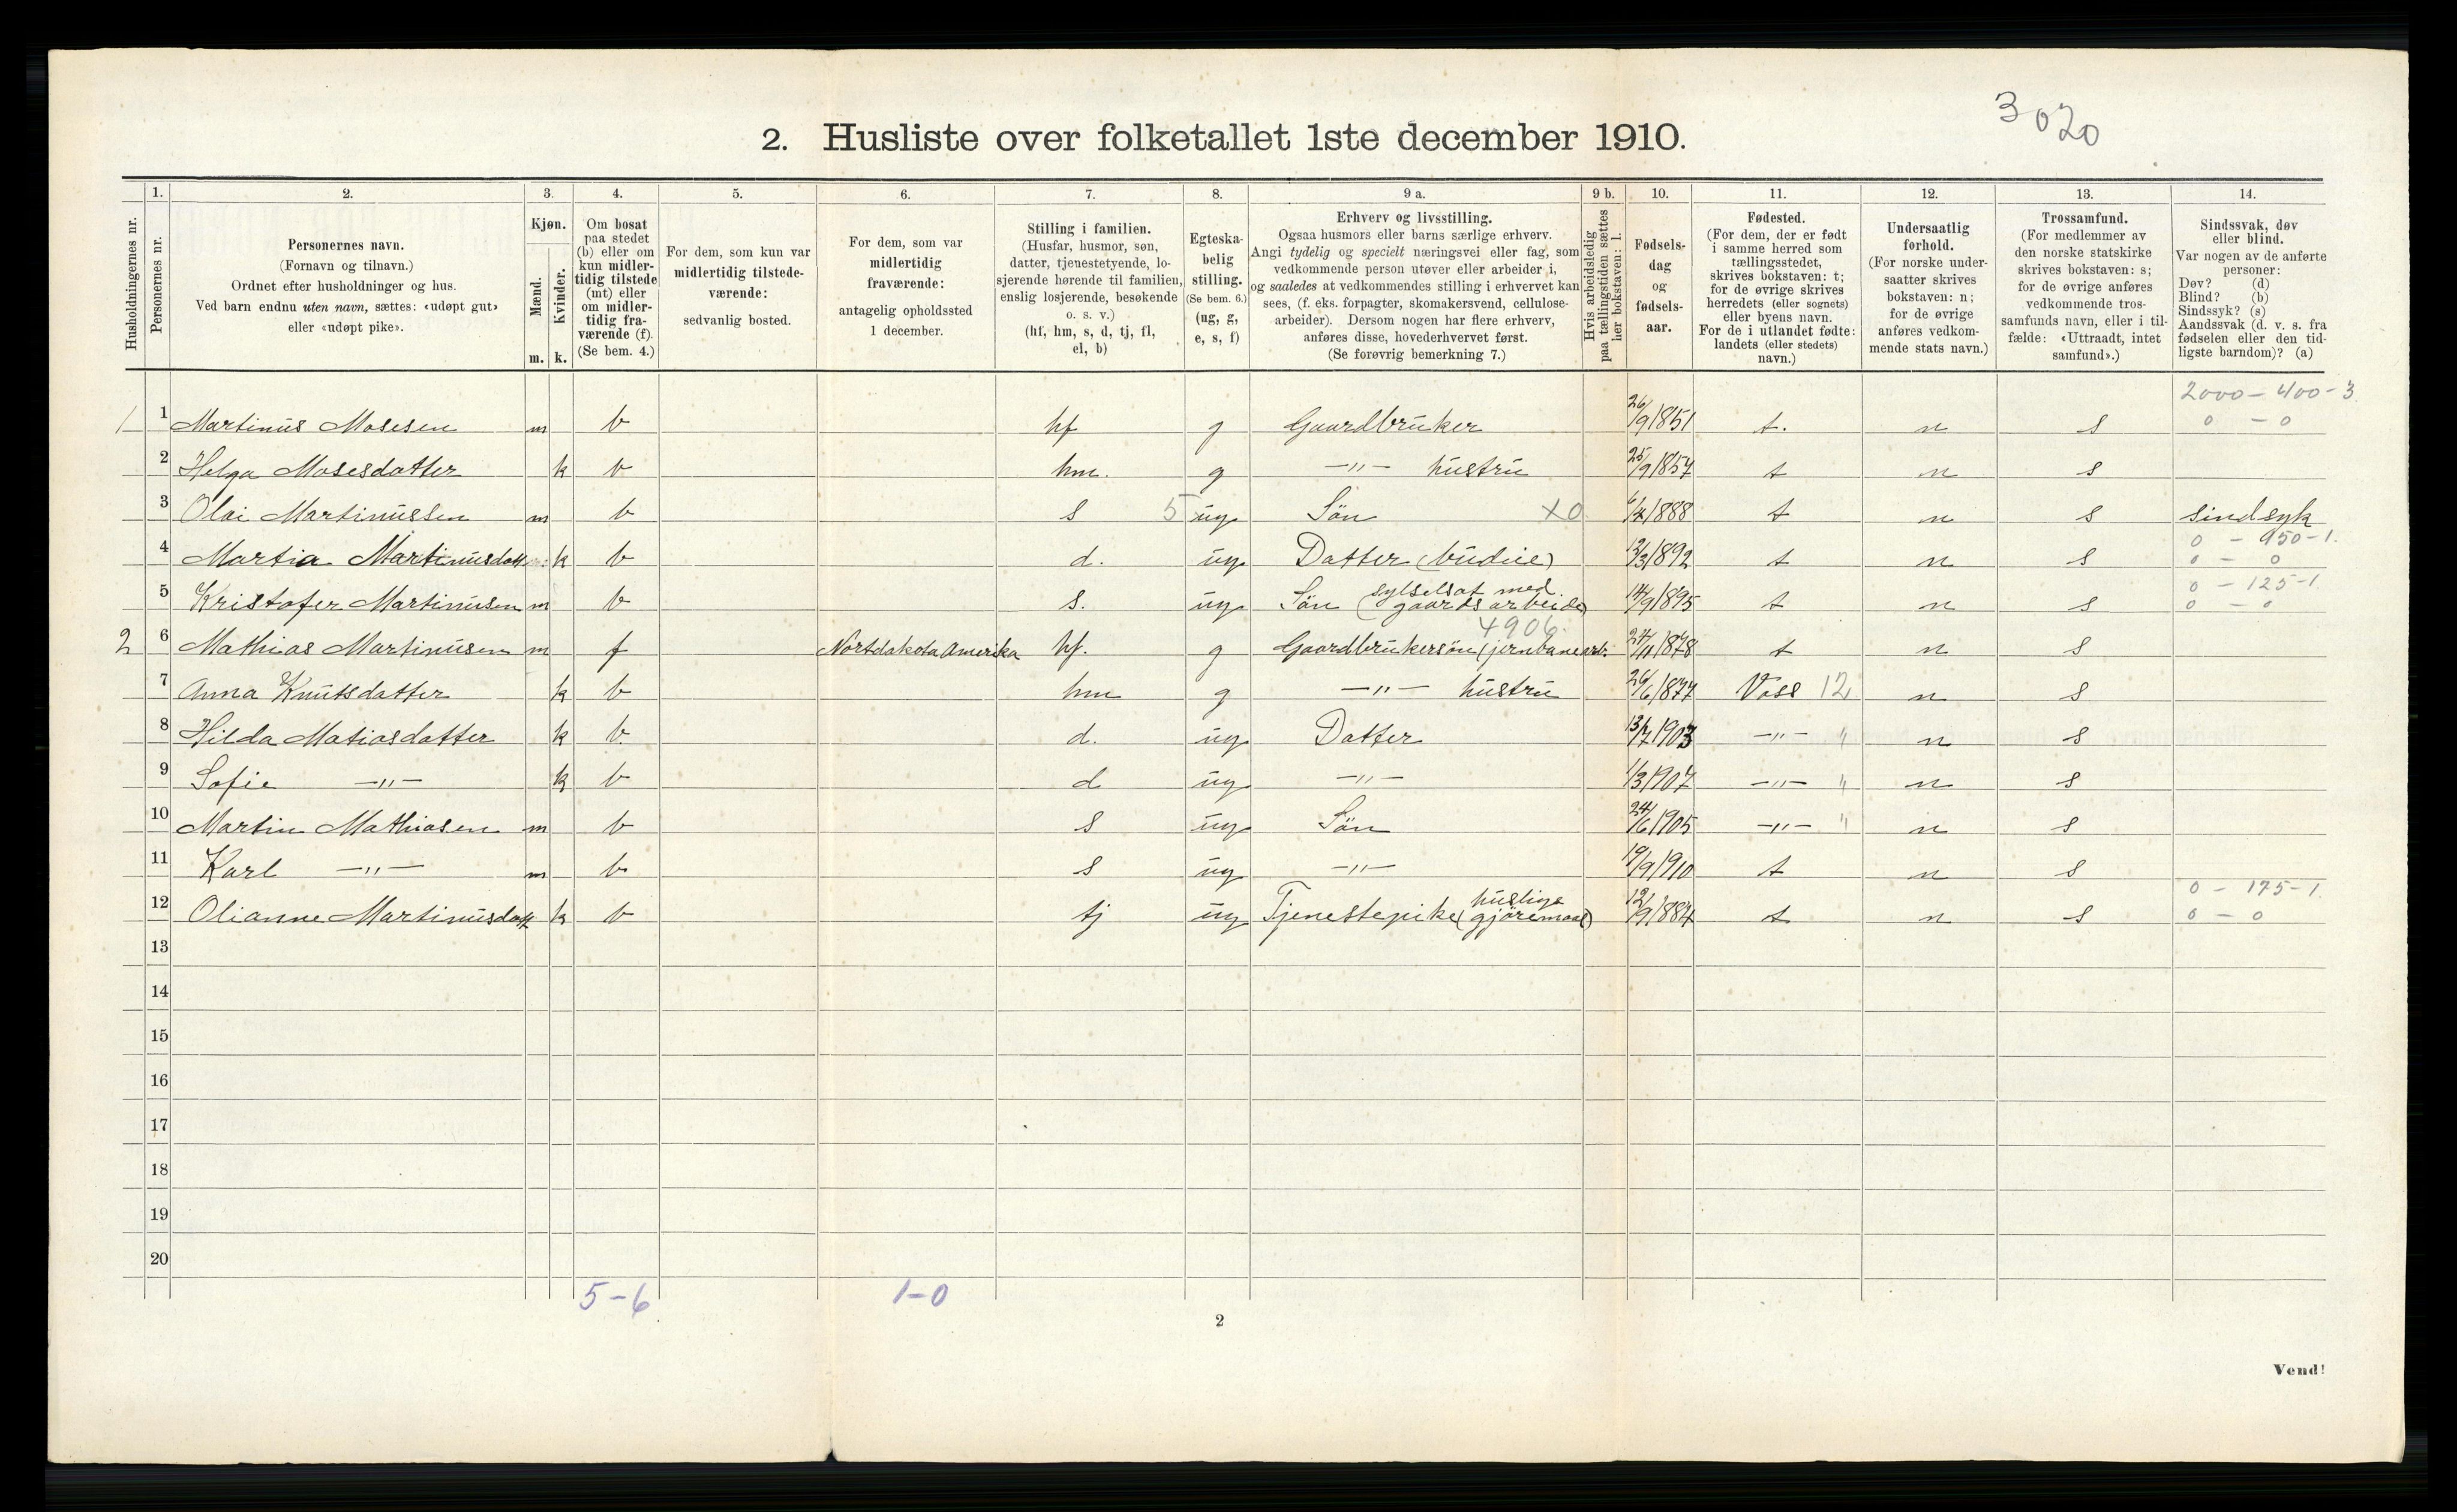 3020
2. Husliste over folketallet 1ste december 1910.
1. 2. 3. 4. 5. 6. 7. 8. 9 a. 9 b. 10. 11. 12. 13. 14.
Husholdningernes nr.
Personernes nr.
Personernes navn.
(Fornavn og tilnavn.)
Ordnet efter husholdninger og hus.
Ved barn endnu uten navn, sættes: «udøpt gut»
eller «udøpt pike».
Kjøn.
Mænd.
Kvinder.
m. k.
Om bosat
paa stedet
(b) eller om
kun midler-
tidig tilstede
(mt) eller
om midler-
tidig fra-
værende (f).
(Se bem. 4.)
For dem, som kun var
midlertidig tilstede-
værende:
sedvanlig bosted.
For dem, som var
midlertidig
fraværende:
antagelig opholdssted
1 december.
Stilling i familien.
(Husfar, husmor, søn,
datter, tjenestetyende, lo-
sjerende hørende til familien,
enslig losjerende, besøkende
o. s. v.)
(hf, hm, s, d, tj, fl,
el, b)
Egteska-
belig
stilling.
(Se bem. 6.)
(ug, g,
e, s, f)
Erhverv og livsstilling.
Ogsaa husmors eller barns særlige erhverv.
Angi tydelig og specielt næringsvei eller fag, som
vedkommende person utøver eller arbeider i,
og saaledes at vedkommendes stilling i erhvervet kan
sees, (f. eks. forpagter, skomakersvend, cellulose-
arbeider). Dersom nogen har flere erhverv,
anføres disse, hovederhvervet først.
(Se forøvrig bemerkning 7.)
Hvis arbeidsledig
paa tællingstiden sættes
her bokstaven: l.
Fødsels-
dag
og
fødsels-
aar.
Fødested.
(For dem, der er født
i samme herred som
tællingsstedet,
skrives bokstaven: t;
for de øvrige skrives
herredets (eller sognets)
eller byens navn.
For de i utlandet fødte:
landets (eller stedets)
navn.)
Undersaatlig
forhold.
(For norske under-
saatter skrives
bokstaven: n;
for de øvrige
anføres vedkom-
mende stats navn.)
Trossamfund.
(For medlemmer av
den norske statskirke
skrives bokstaven: s;
for de øvrige anføres
vedkommende tros-
samfunds navn, eller i til-
fælde: «Uttraadt, intet
samfund».)
Sindssvak, døv
eller blind.
Var nogen av de anførte
personer:
Døv? (d)
Blind? (b)
Sindssyk? (s)
Aandssvak (d. v. s. fra
fødselen eller den tid-
ligste barndom)? (a)
2000 - 400 - 3
1 1 Martinus Mosesen m b hf g Gaardbruker 26/9 1851 t. n s 0 - 0
2 Helga Mosesdatter k b hm. g -"- hustru 25/9 1857 t n s
3 Olai Martinussen m b s 5 ug Sön X0 6/4 1888 t n s sindsyk
0 - 950 - 1.
4 Martia Martinusdatt k b d. ug Datter (budeie) 12/3 1892 t n s 0 - 0
0 - 125 - 1
5 Kristofer Martinusen m b s. ug Sön (sylselsat med gaardsarbeide) 14/9 1895 t n s 0 - 0
4906.
2 6 Mathias Martinusen m f Nortdakota Amerika hf. g Gaardbrukersön (jernbanearb. 24/11 1878 t n s
7 Anna Knutsdatter k b hm g -"- hustru 26/6 1877 Voss 12 n s
8 Hilda Matiasdatter k b. d. ug Datter 13/7 1903 -"- " n s
9 Sofie -"- k b d ug -"- 1/3 1907 -"- " n s
10 Martin Mathiasen m b s ug Sön 24/6 1905 -"- " n s
11 Karl -"- m b s ug -"- 19/9 1910 t n s
0 - 175 - 1
12 Olianne Martinusdatt k b tj ug Tjenestepike (huslige gjöremaal) 12/9 1884 t n s 0 - 0
13
14
15
16
17
18
19
20
5-6 1-0
2
Vend!